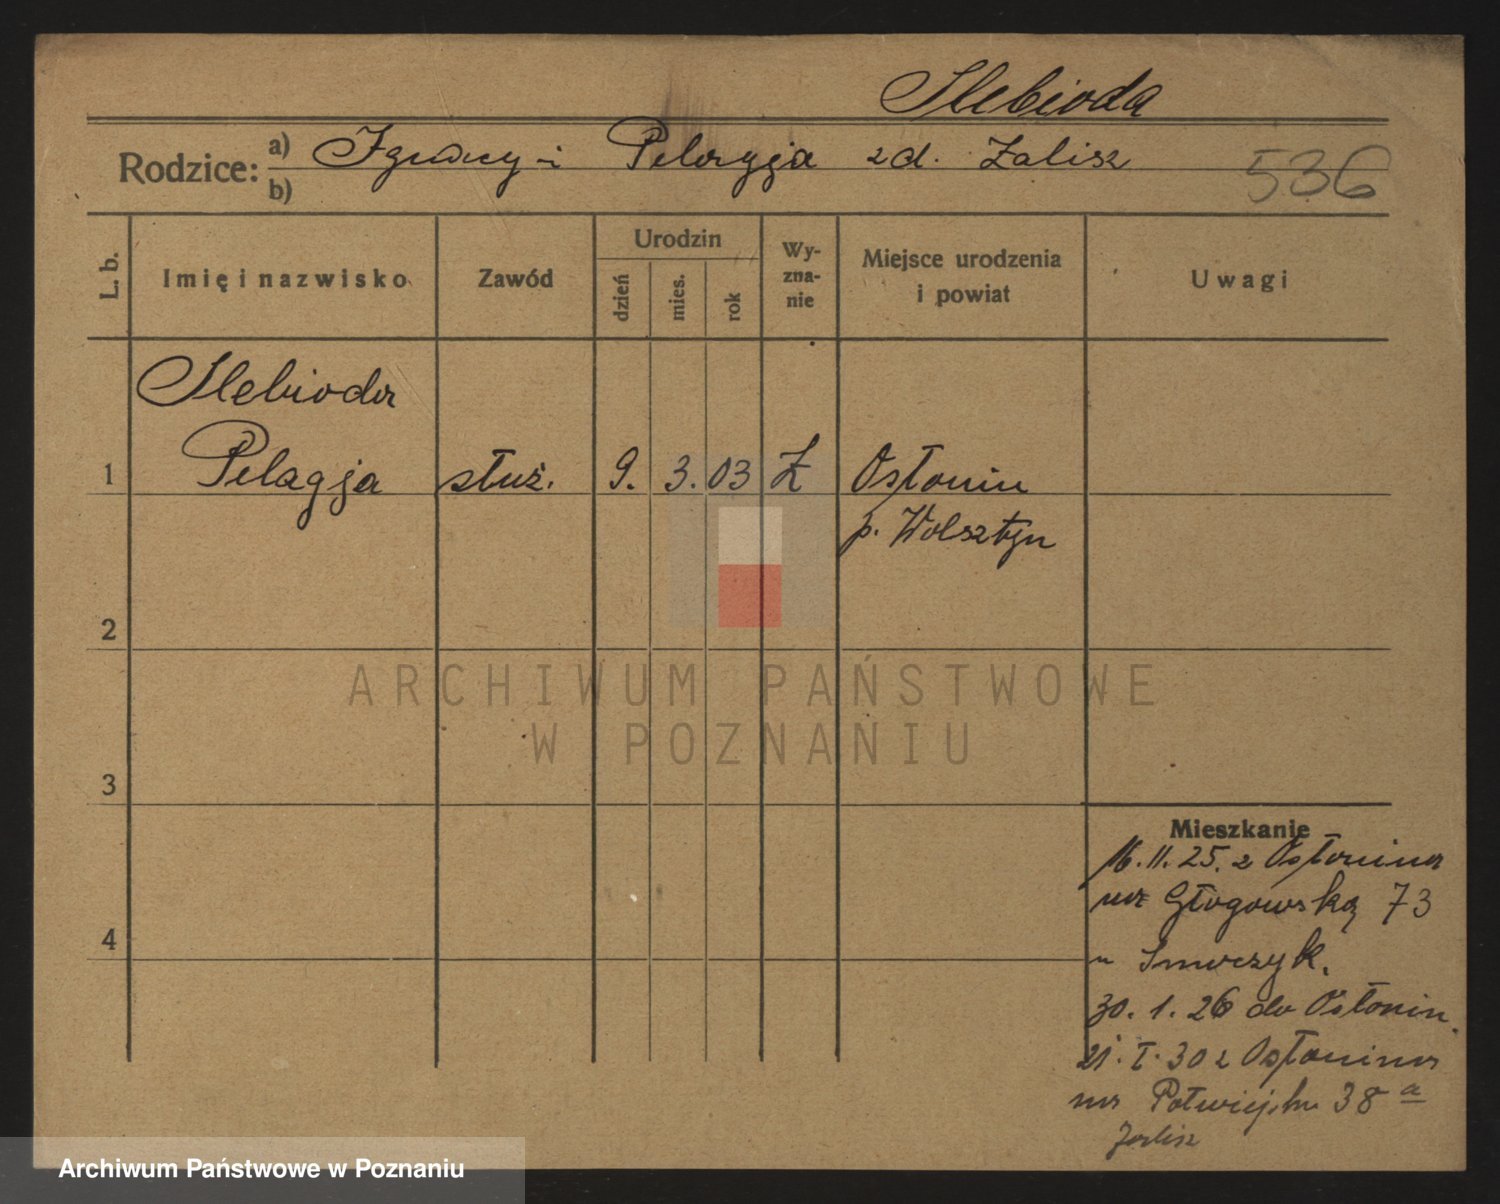 Slebioda
Rodzice: a) Ignacy i Pelagja zd. Zalisz
b)
536
L. b.
Imię i nazwisko
Zawód
Urodzin
dzień
mies.
rok
Wy-
zna-
nie
Miejsce urodzenia
i powiat
Uwagi
Slebioda
1 Pelagja służ. 9. 3. 03 Z Osłonin
p. Wolsztyn
2
ARCHIWUM PAŃSTWOWE
W POZNANIU
3
Mieszkanie
16.11.25. z Osłonina
na Głogowską 73
4
u Smoczyk.
30. 1. 26 do Osłonin.
21. I. 30 z Osłonina
na Półwiejską 38 a
Zalisz
Archiwum Państwowe w Poznaniu